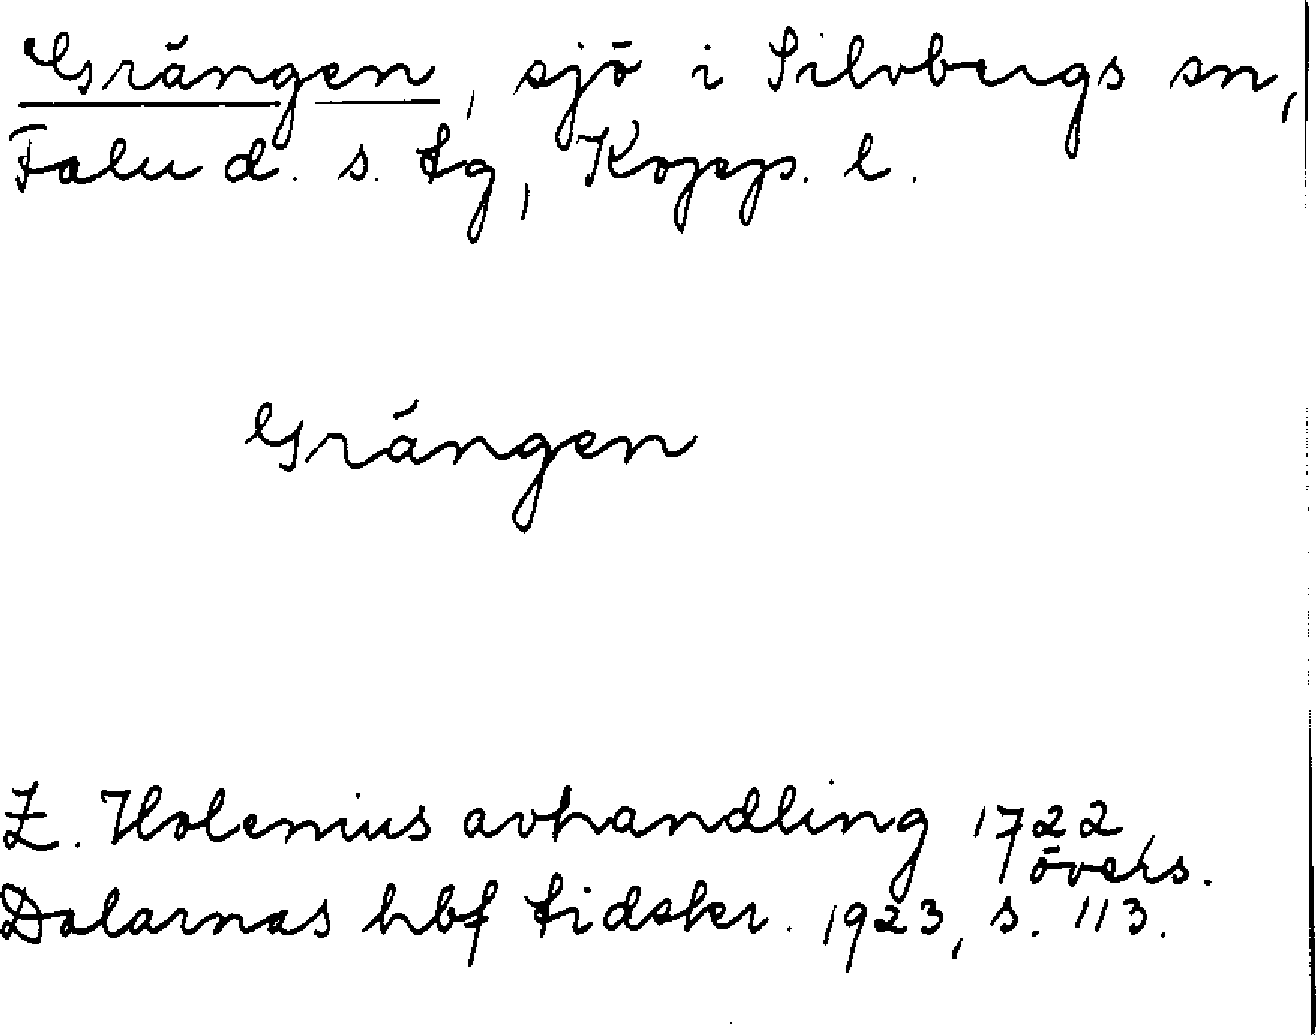 Grängen, sjö i Silvbergs sn,
Falu d. s. tg, Kopp. l.
Grängen
Z. Holenius avhandling 1722,
övers.
Dalarnas hbf tidskr. 1923, s. 113.